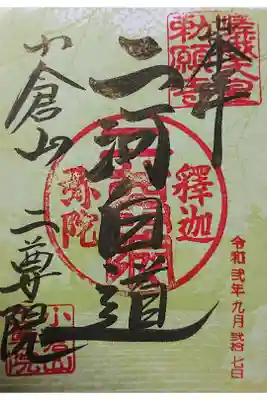 嵯峨天皇
勅願寺
奉拝
二河白道
釋迦
弥陀
小倉山 二尊院
令和弐年九月弐拾七日